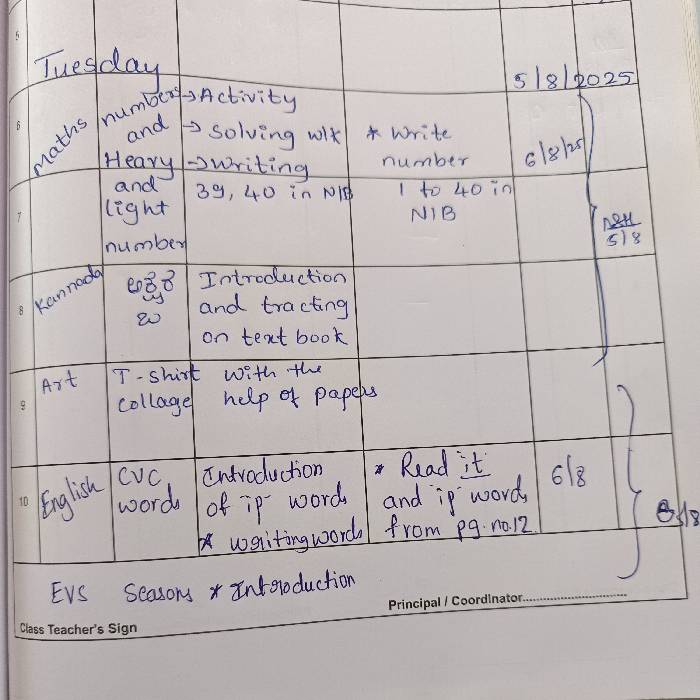 5
Tuesday
5/8/2025
6
maths
numbers
and
Heavy
and
light
number
→ Activity
→ Solving w/k
→ writing
39, 40 in N/B
* Write
number
1 to 40 in
N/B
6/8/25
7
5/8
8
Kannada
ಅಕ್ಷರ
Introduction
and tracting
on text book
9
Art
T-shirt
collage
with the
help of papers
10
English
CVC
words
Introduction
of "ip" word
* writing words
* Read it
and "ip" word
from pg.no.12
6/8
EVS Seasons * Introduction
Class Teacher's Sign
Principal / Coordinator..............................